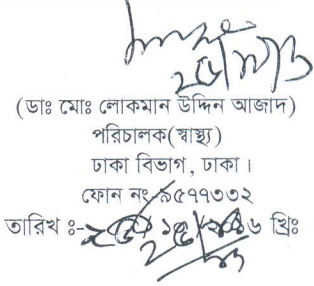 (ডাঃ মোঃ লোকমান উদ্দিন আজাদ)
পরিচালক(স্বাস্থ্য)
ঢাকা বিভাগ, ঢাকা।
ফোন নং-৯৫৭৭৩৩২
তারিখ ঃ- খ্রিঃ